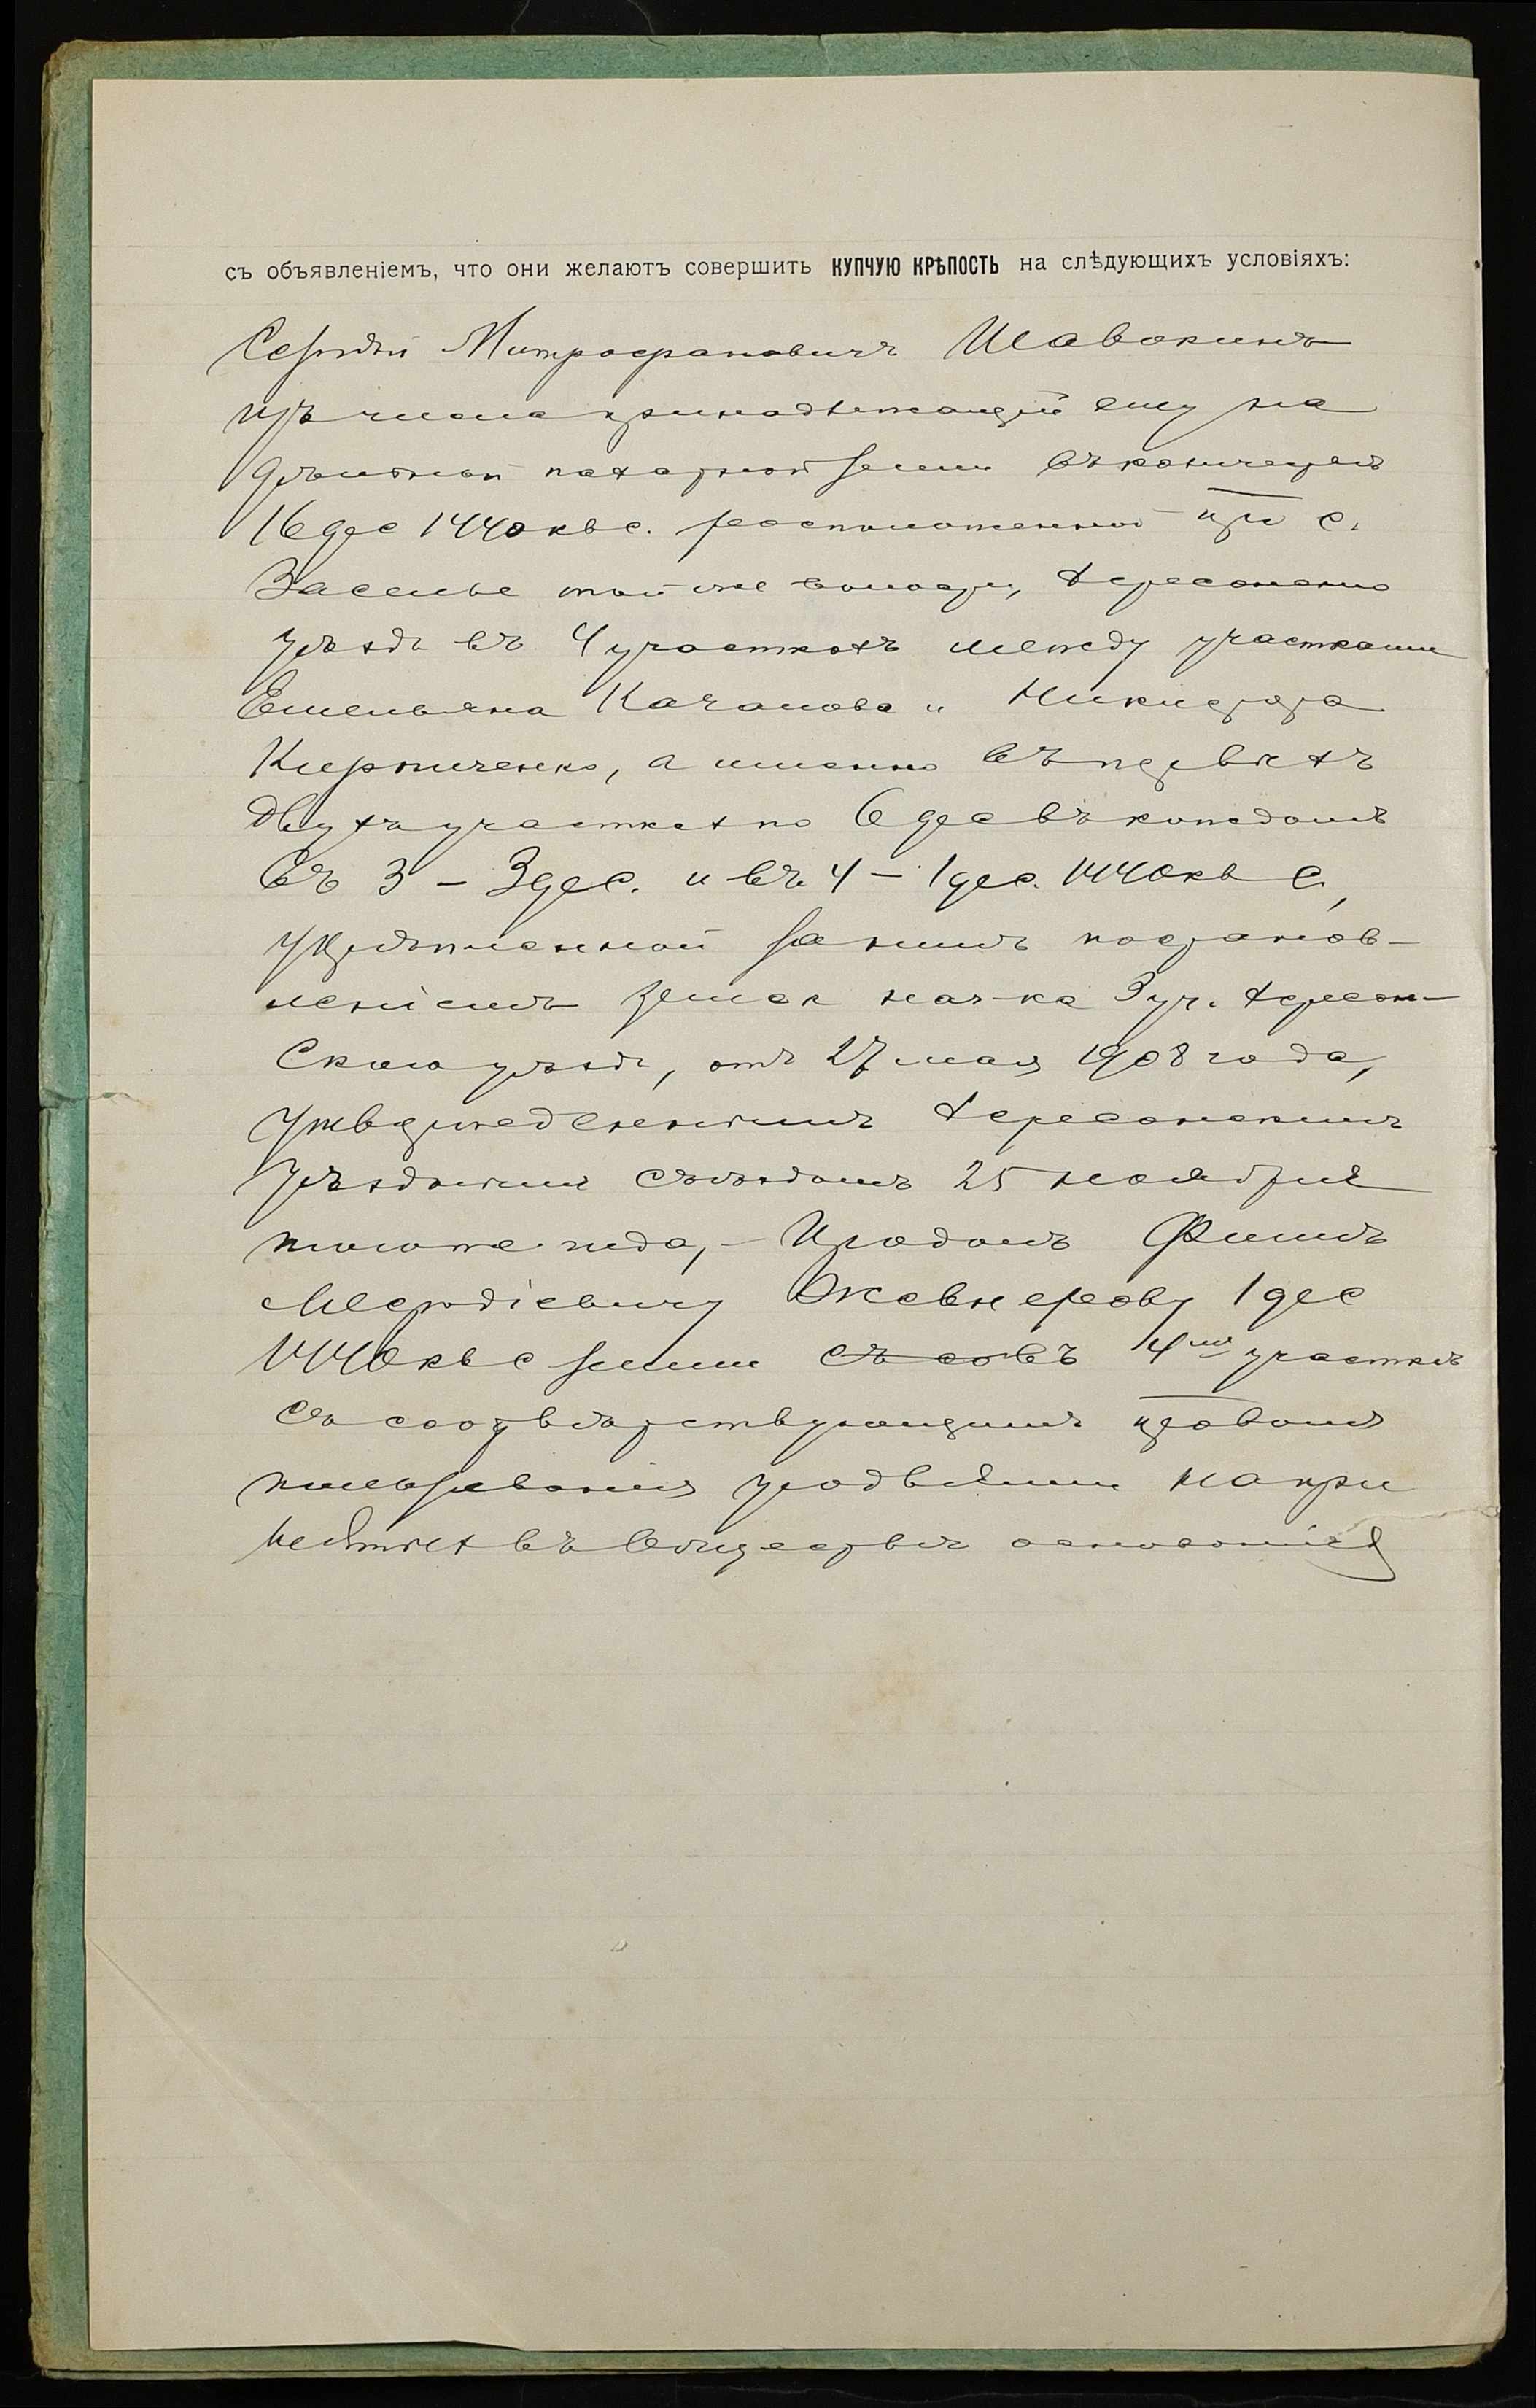 съ объявленіемъ, что они желаютъ совершить КУПЧУЮ КРѢПОСТЬ на слѣдующихъ условіяхъ:
Сергѣй Митрофановичъ Шавокинъ
изъ числа принадлежащей ему на
дѣльной пахатной земли въ количествѣ
16 дес 1440 кв с. расположенной при с.
Заселье той же волости, Херсонскаго
уѣзда въ 4 участкахъ между участками
Емельяна Качанова и Никифора
Кирпиченко, а именно въ первыхъ
двухъ участках по 6 дес въ каждомъ
въ 3 – 3 дес. и въ 4 – 1 дес. 1440 кв с,
укрѣпленной за нимъ постанов-
леніемъ земск нач-ка 3 уч. Херсон-
скаго уѣзда, отъ 27 мая 1908 года,
утвержденнымъ Херсонскимъ
Уѣзднымъ съѣздомъ 25 ноября
того же года, – продалъ
1 дес
1440 кв с земли съ со въ 4мъ участкѣ
съ соотвѣтствующимъ правомъ
пользованія угодьями на при
нятых въ обществѣ основаніях